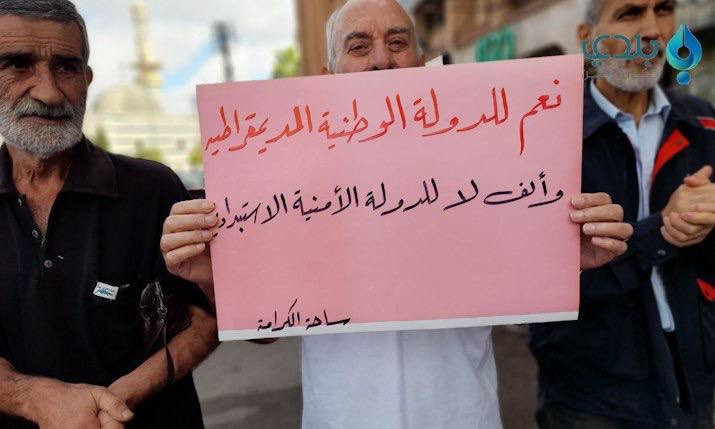 بلدي
نعم للدولة الوطنية الديمقراطية
وألف لا للدولة الأمنية الاستبدادية
ساحة الكرامة